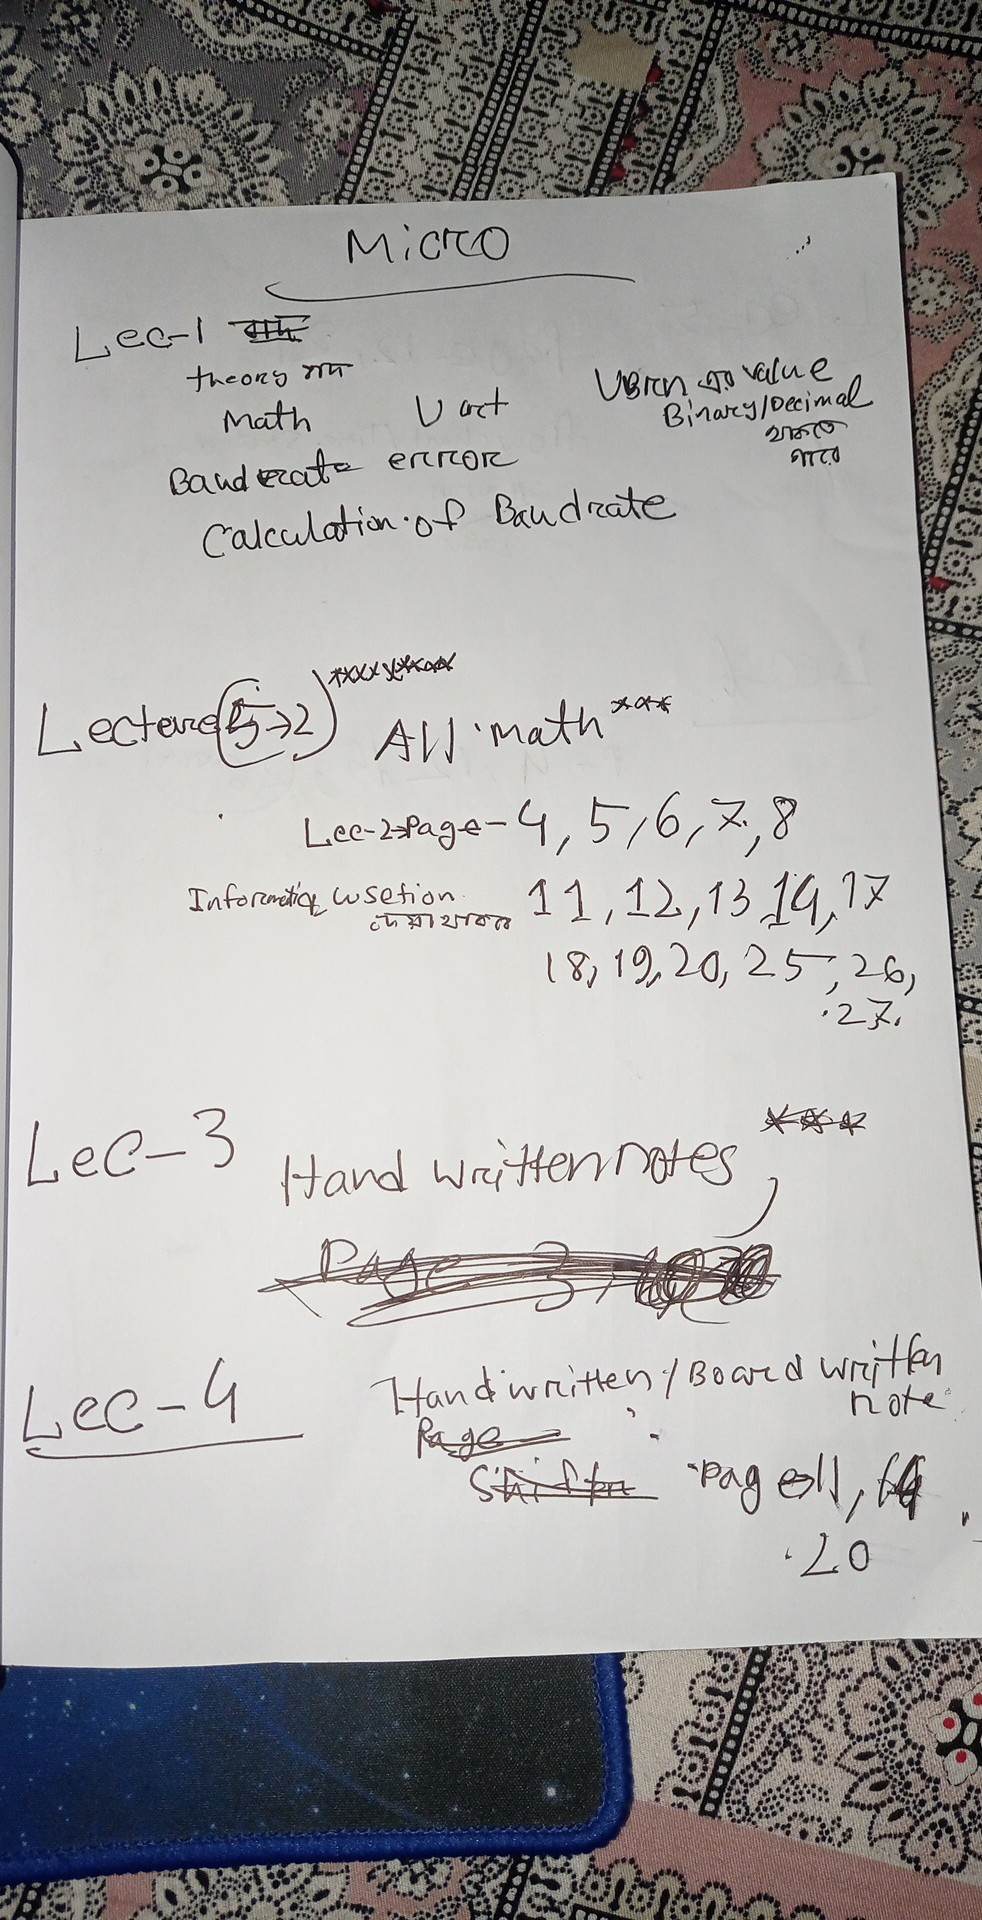 Micro
Lec-1
theory বাদ
Math Uart
UBRRn এর value
Binary/Decimal
থাকতে
পারে
Baudrate error
Calculation of Baudrate
Lecture (5→2) All math ***
Lec-2→Page- 4, 5, 6, 7, 8
Information
দেয়া থাকবে 11, 12, 13, 14, 17
18, 19, 20, 25, 26,
27.
Lec-3 Hand written notes ***
Page 3,
Lec-4 Hand written / Board written
note
Page
Page 11,
20